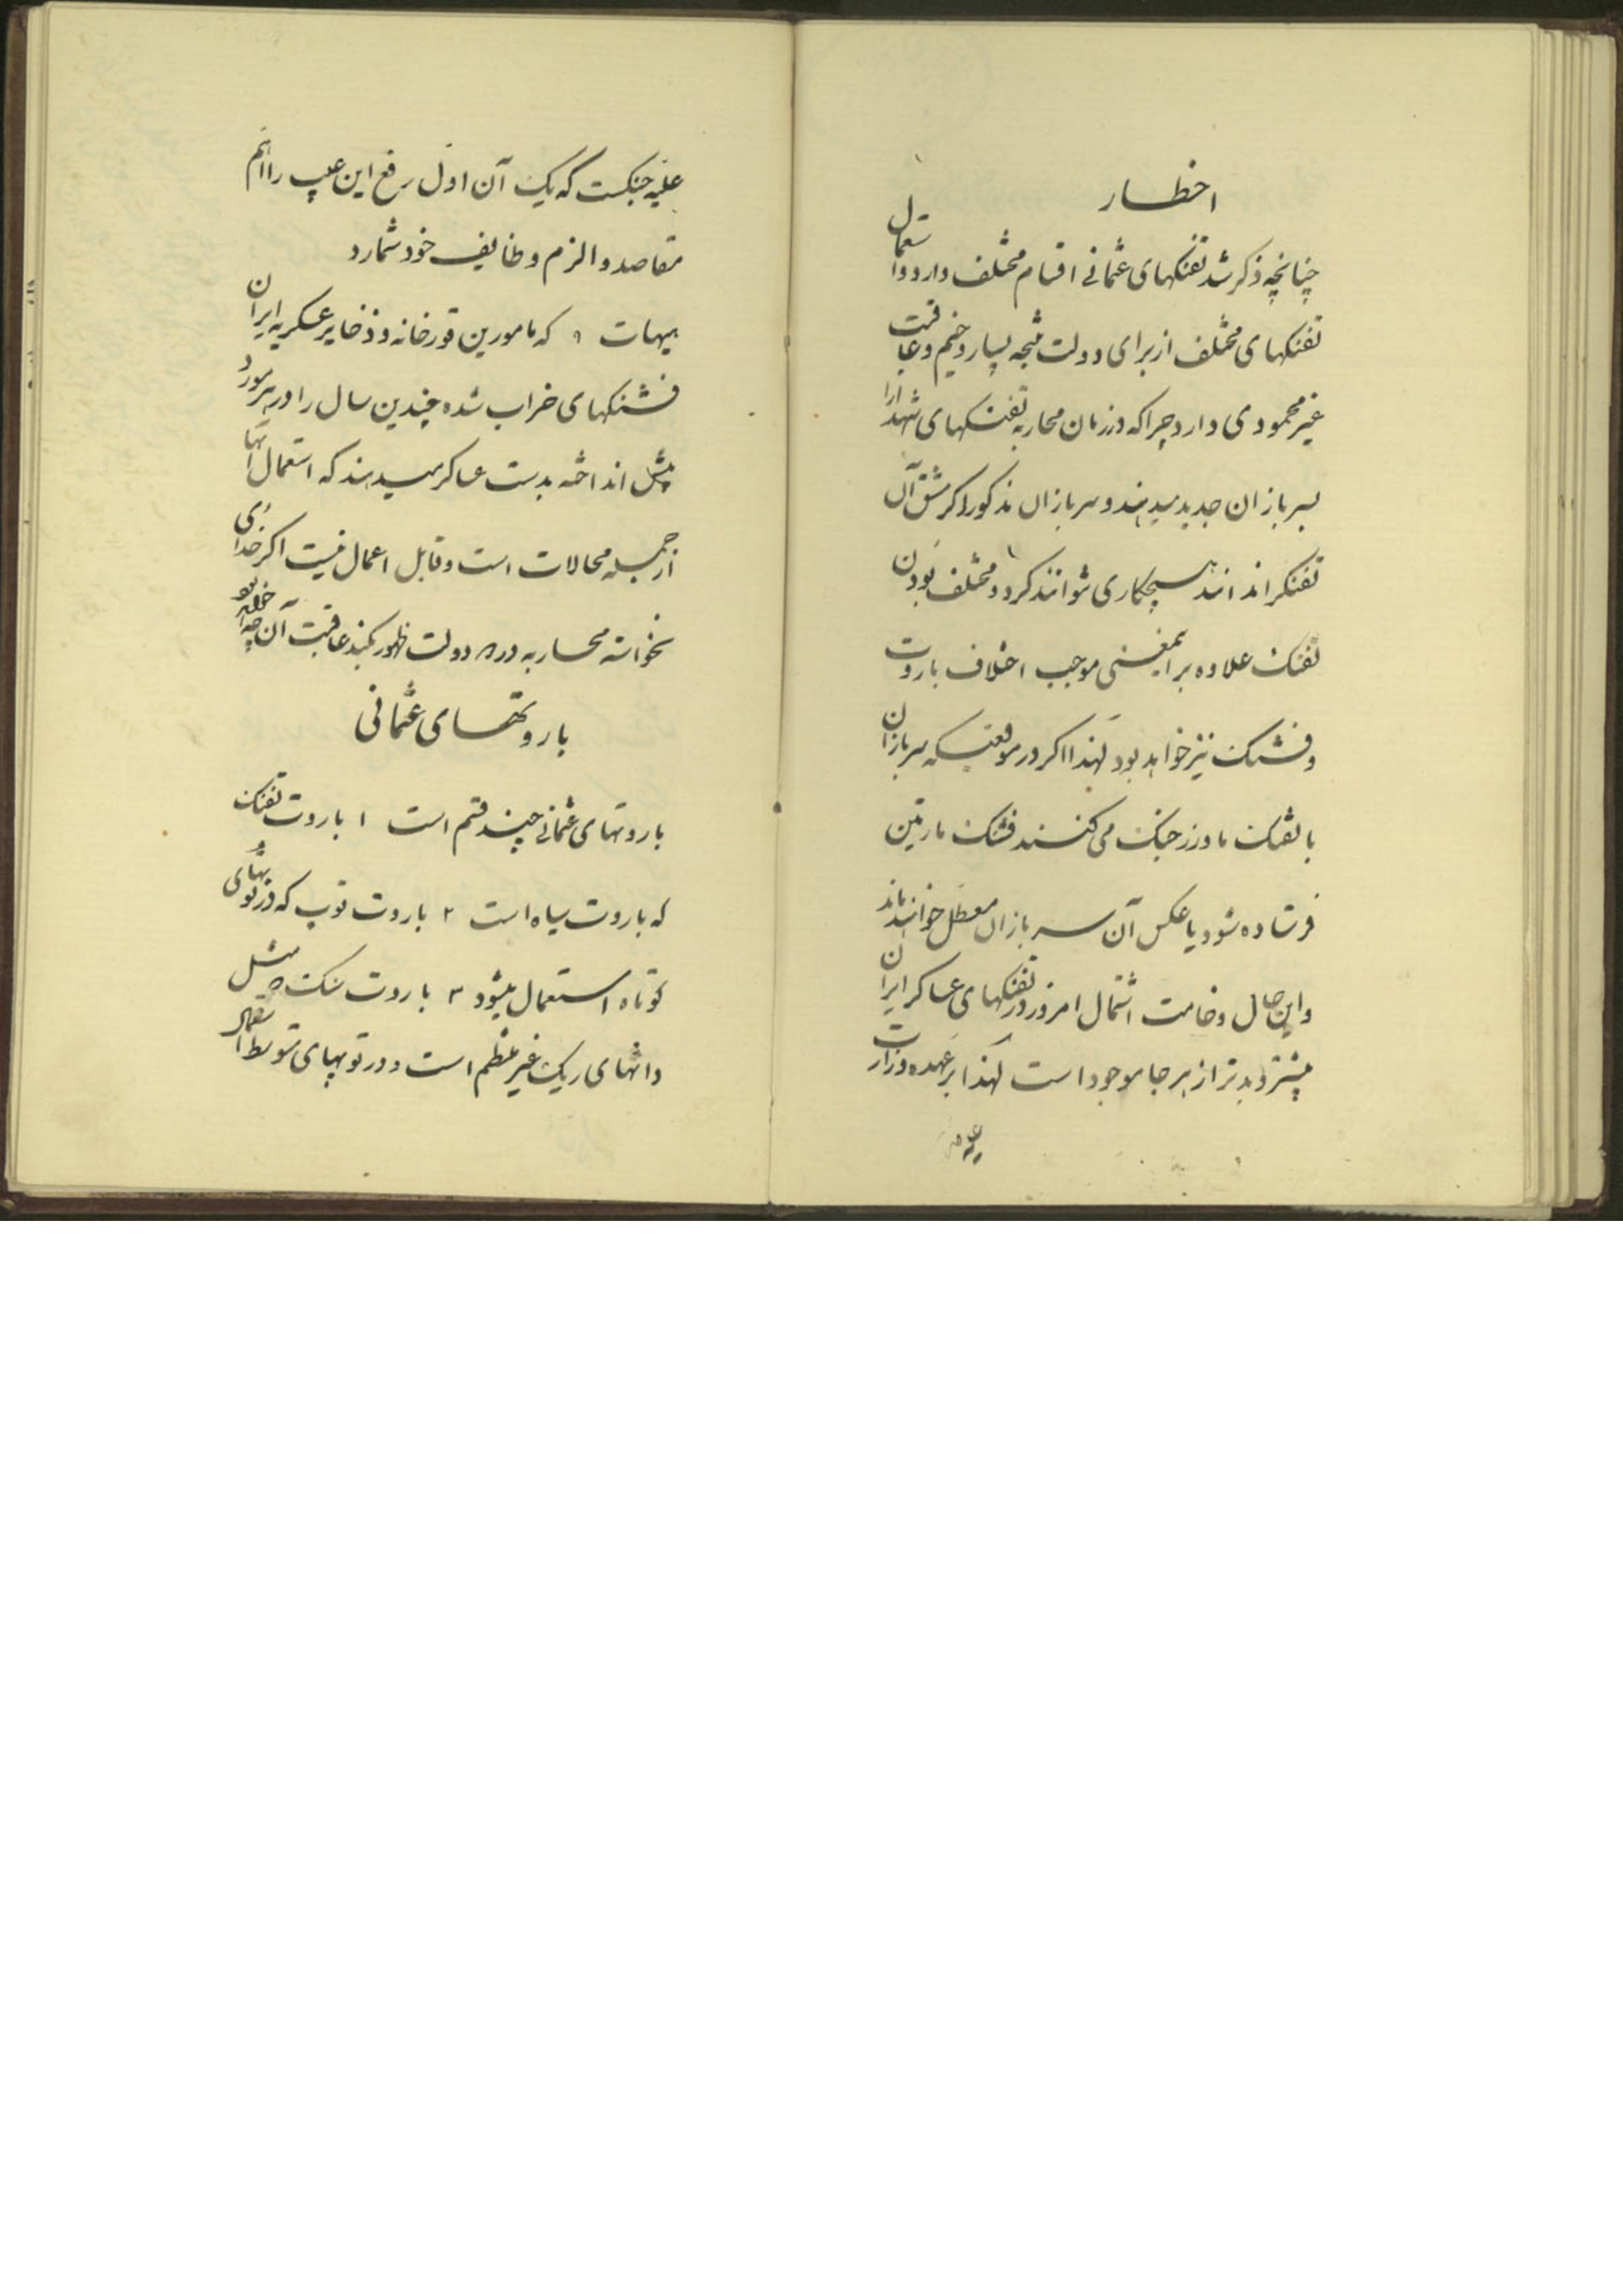 اخطار
چنانچه ذکر شد تفنکهای عثمانی اقسام مختلف دارد و استعمال
تفنکهای مختلف از برای دولت نتیجه بسیار وخیم و عاقبت
غیر محمودی دارد چرا که در زمان محاربه تفنکهای شهدا را
بسربازان جدید میدهند و سربازان مذکور اکر مشق آن
تفنکرا ندانند هیچکاری نتوانند کرد و مختلف بودن
تفنک علاوه بر اینمعنی موجب اختلاف باروت
و فشنک نیز خواهد بود لهذا اکر در موقعیکه سربازان
با تفنک ماوزر جنک می کنند فشنک مارتین
فرستاده شود یا عکس آن سربازان معطل خواهند ماند
و این حال وخامت اشتمال امروز در تفنکهای عساکر ایران
بیشتر و بدتر از هر جا موجود است لهذا بر عهده وزارت
علیه
علیه جنکست که یک آن اول رفع این عیب را اهم
مقاصد و الزم وظایف خود شمارد
هیهات که مامورین قورخانه و ذخایر عسکریه ایران
فشنکهای خراب شده چندین سال را در هر مورد
پیش انداخته بدست عساکر میدهند که استعمال آنها
از جمله محالات است و قابل اعمال نیست اکر خدای
نخواسته محاربه در دولت ظهور بکند عاقبت آن چه خواهد بود
باروتهای عثمانی
باروتهای عثمانی چند قسم است ۱ باروت تفنک
که باروت سیاه است ۲ باروت توپ که در توپهای
کوتاه استعمال میشود ۳ باروت سنک مثل
دانهای ریک غیر منظم است و در توپهای متوسط استعمال